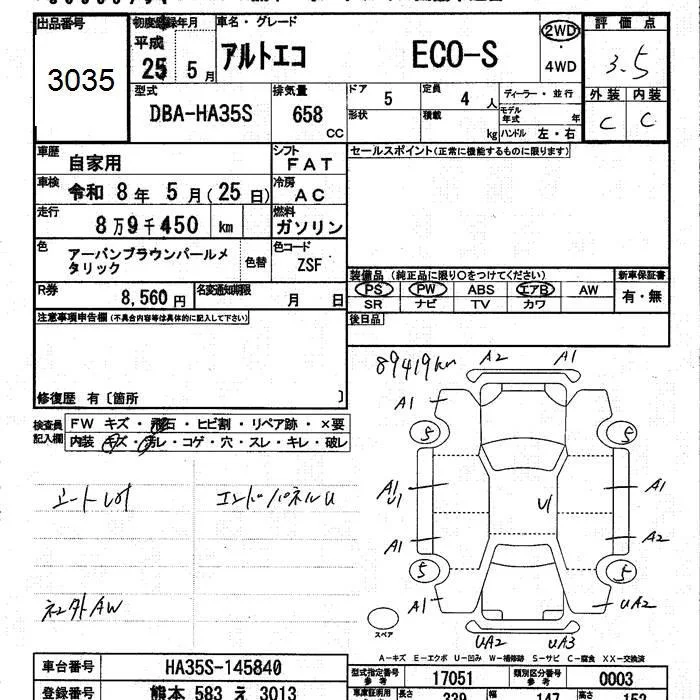 出品番号 初度登録年月 車名・グレード 評価点
3035 平成 25年 5月 アルトエコ ECO-S 2WD 4WD 3.5
型式 DBA-HA35S 排気量 658 cc ドア 5 定員 4 人 ディーラー・並行 外装 内装
形状 積載 kg モデル年式 年 ハンドル 左・右 C C
車歴 自家用 シフト FAT セールスポイント(正常に機能するものに限ります)
車検 令和 8年 5月(25日) 冷房 AC
走行 8万9千450 km 燃料 ガソリン
色 アーバンブラウンパールメ
タリック 色替 色コード ZSF
装備品 (純正品に限り○をつけてください) 新車保証書
R券 8,560円 名変通知期限 月 日 PS PW ABS エアB AW 有・無
SR ナビ TV カワ
注意事項申告欄(不具合内容等は具体的に記入して下さい) 後日品
修復歴 有〔箇所 〕
検査員記入欄 FW キズ・飛石・ヒビ割・リペア跡・×要
内装 キズ・汚レ・コゲ・穴・スレ・キレ・破レ
89419km A2 A1
A1
5 5
シートしみ エンドパネルU
A1 U1 U1 A1
A1 A2
5 5
社外AW
A1 UA2
スペア UA2 UA3
A―キズ E―エクボ U―凹み W―補修跡 S―サビ C―腐食 XX―交換済
車台番号 HA35S-145840 型式指定番号 参考 17051 類別区分番号 参考 0003
登録番号 熊本 583 え 3013 車庫証明用 長さ 339 幅 147 高さ 152